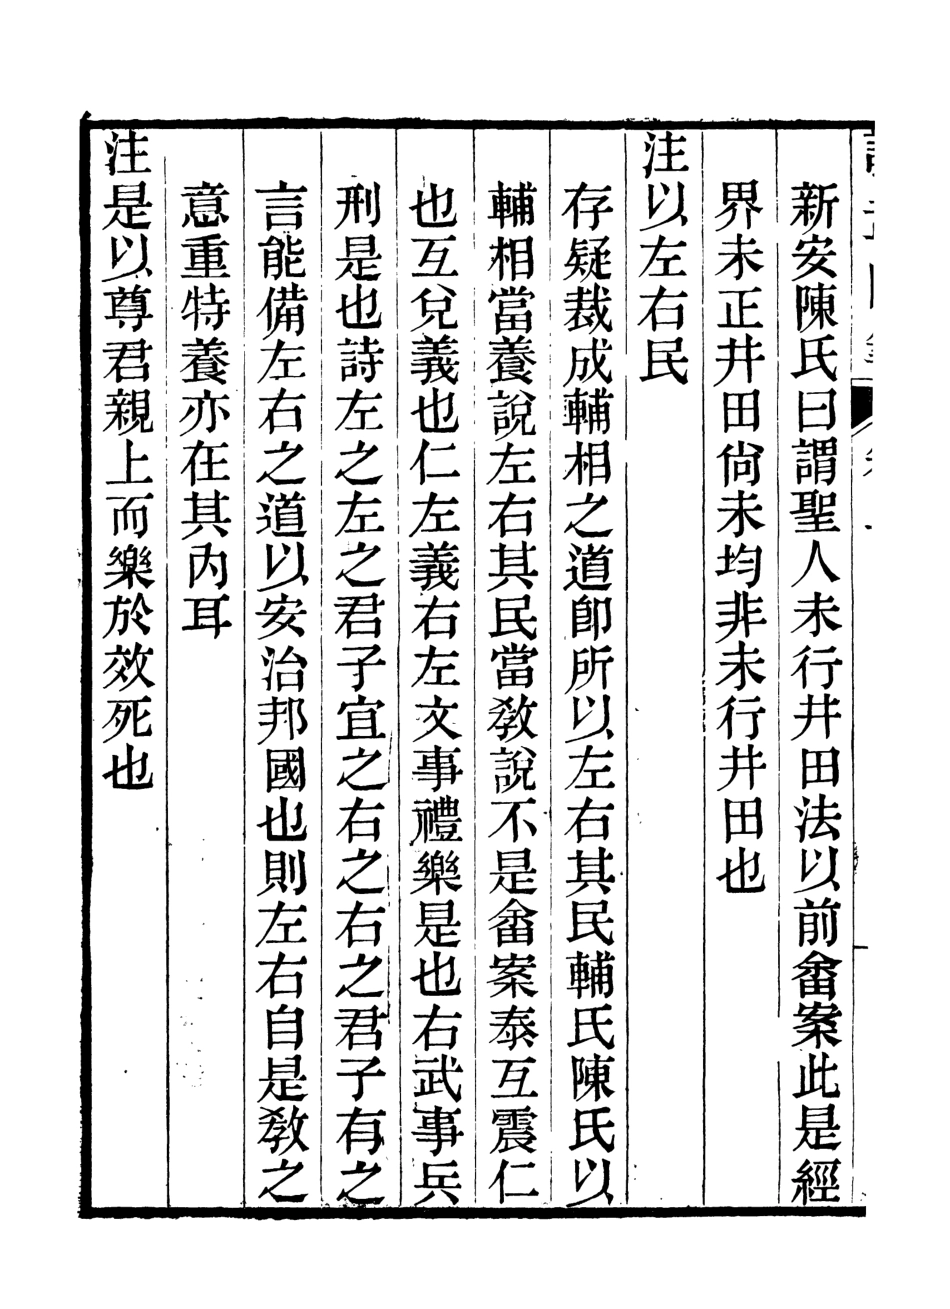 新安陳氏曰謂聖人未行井田法以前畬案此是經
界未正井田尙未均非未行井田也
注以左右民
存疑裁成輔相之道卽所以左右其民輔氏陳氏以
輔相當養說左右其民當敎說不是畬案泰互震仁
也互兌義也仁左義右左文事禮樂是也右武事兵
刑是也詩左之左之君子宜之右之右之君子有之
言能備左右之道以安治邦國也則左右自是敎之
意重特養亦在其內耳
注是以尊君親上而樂於效死也